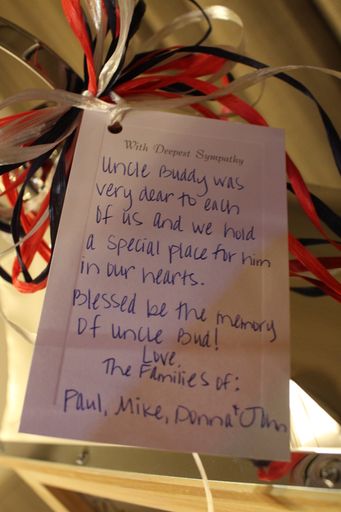 With Deepest Sympathy
Uncle Buddy was
very dear to each
of us and we hold
a special place for him
in our hearts.
Blessed be the memory
Of Uncle Bud!
Love,
The Families of:
Paul, Mike, Donna + John